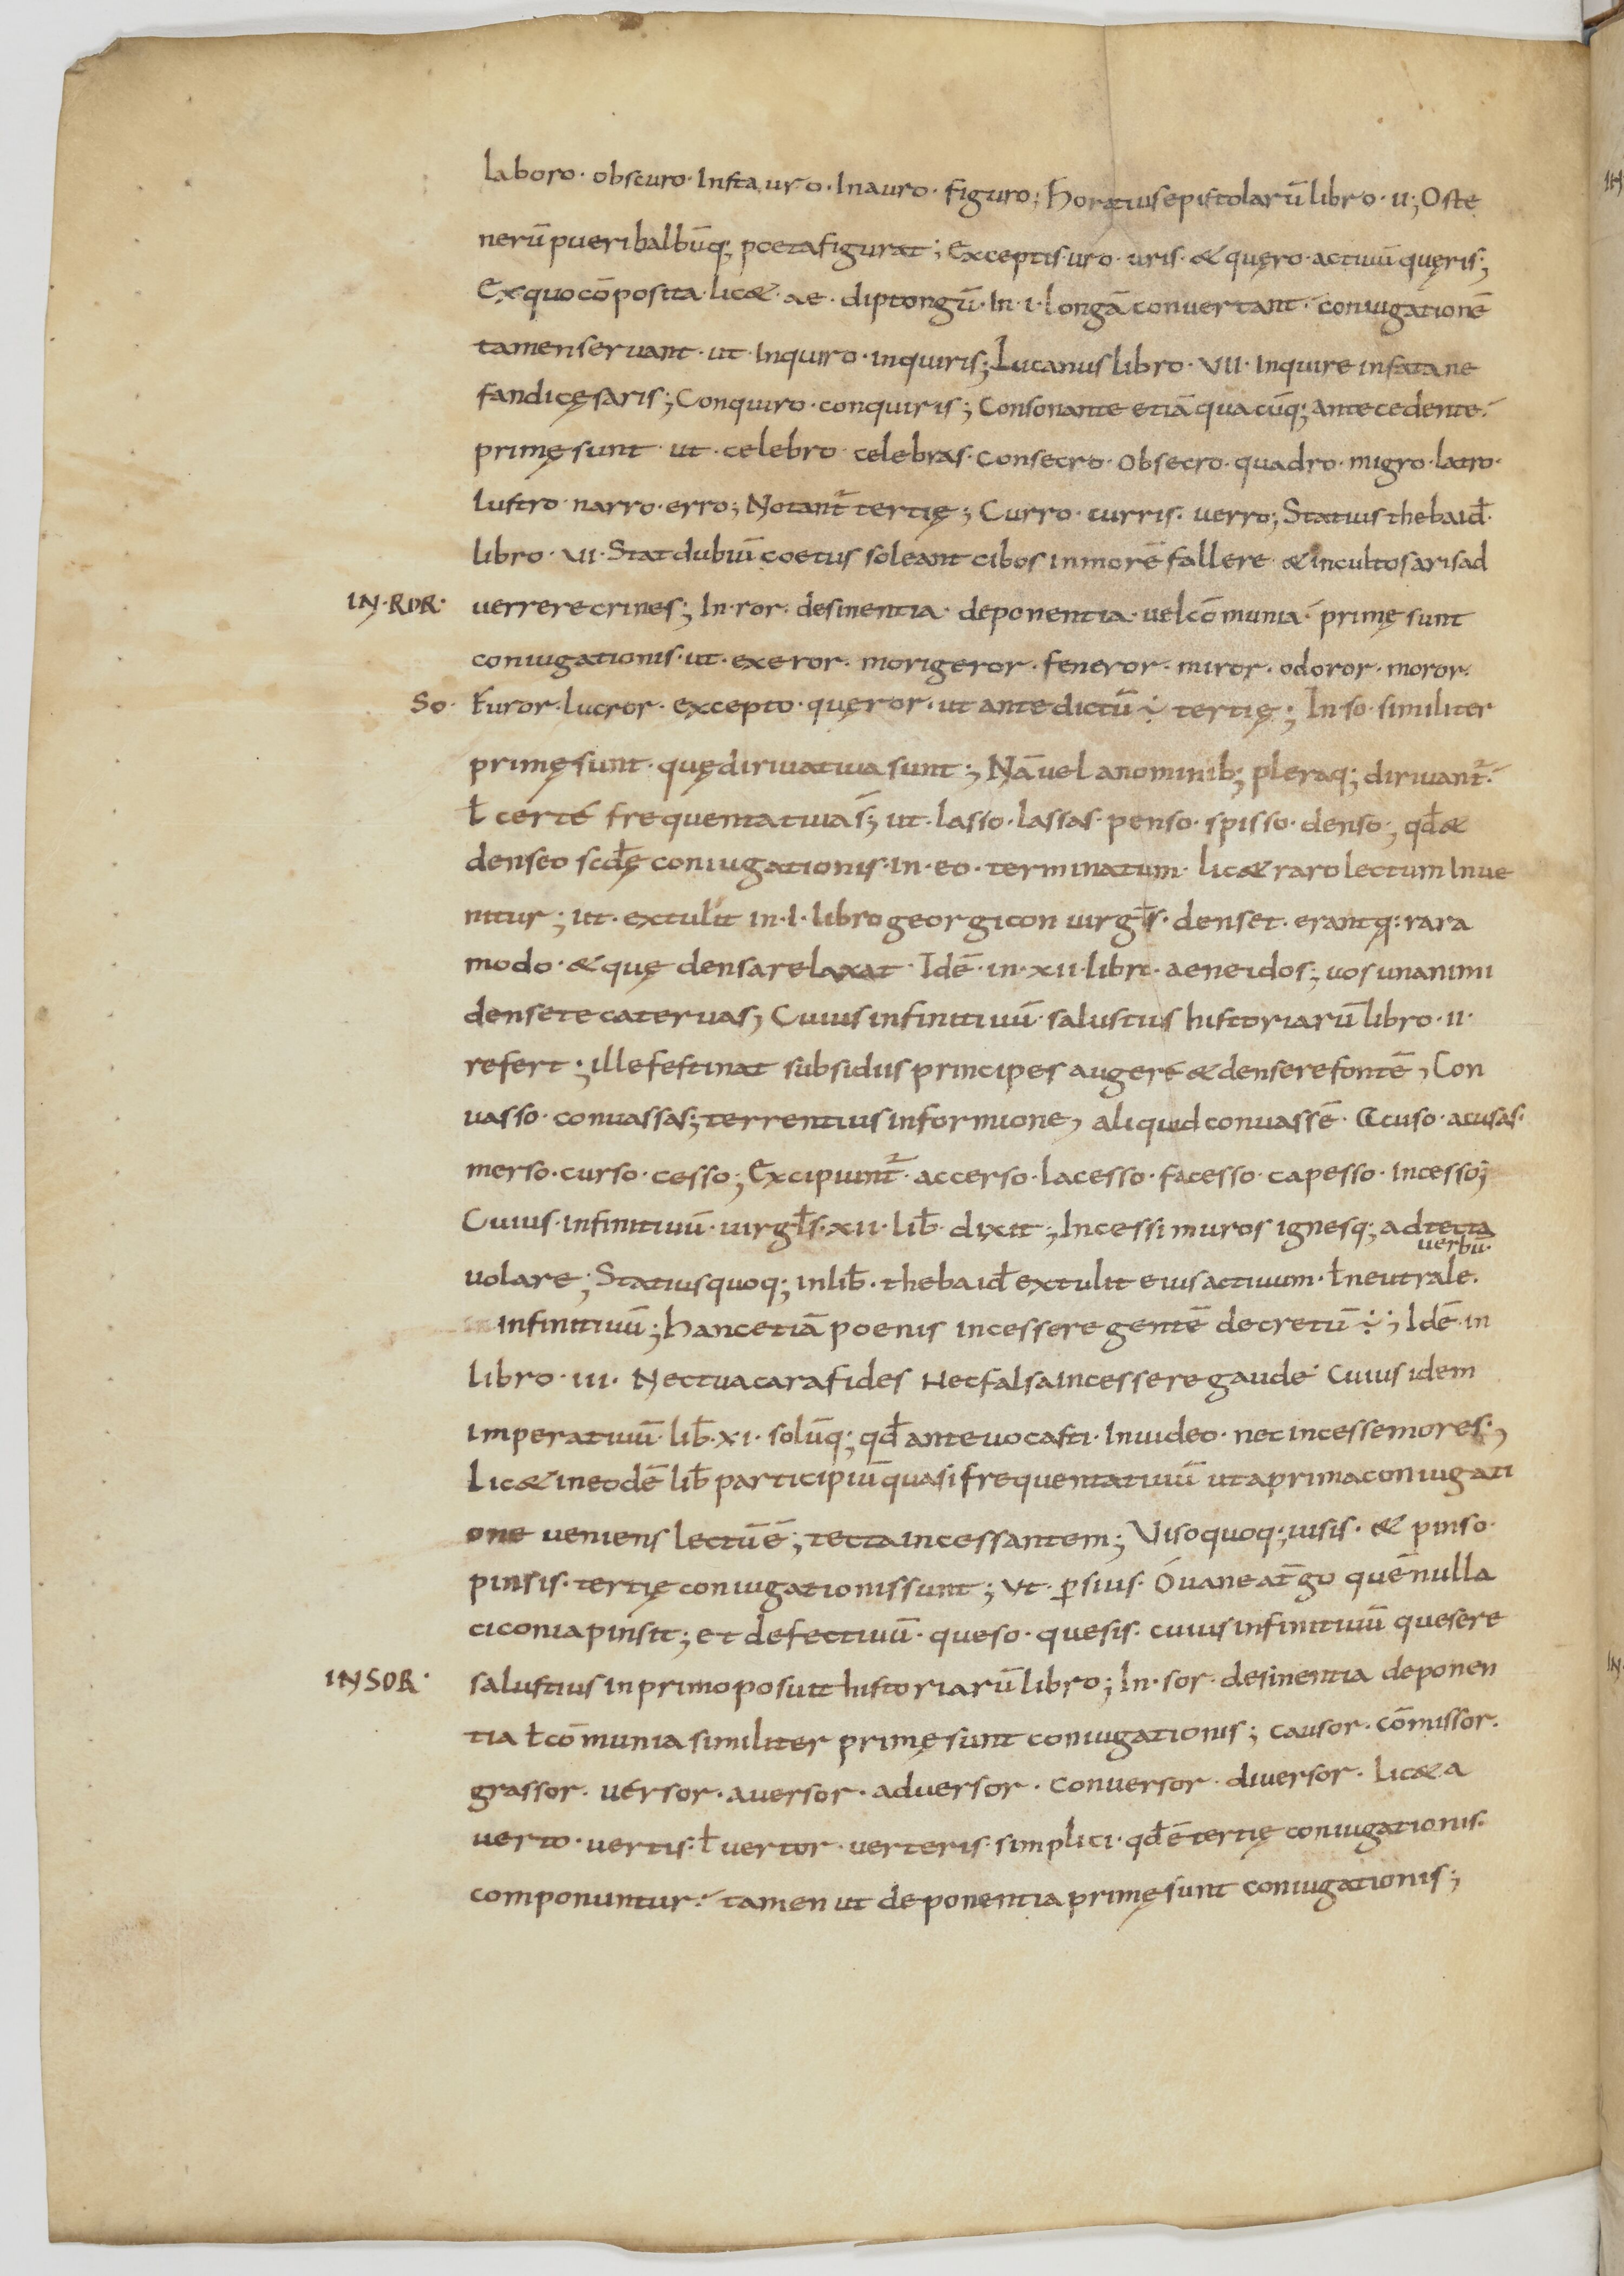 laboro · obscuro · Instauro · Inauro · figuro; horatius epistolarū libro · II; Os te
nerū pueri balbūq; poeta figurat; Exceptis · uro · uris · & quęro · actiuū quęris;
Ex quo cōposita · lic& · ae · diptongū · In · i · longā conuertant · coniugationē
tamen seruant · ut Inquiro · inquiris; Lucanus libro · VII · Inquire in fata ne
fandi cęsaris; Conquiro · conquiris; Consonante etiā quacūq; antecedente ·
primę sunt · ut · celebro celebras · Consecro · Obsecro · quadro · migro · latro ·
lustro · narro · erro; Notant̄ tertię; Curro · curris · uerro; Statius thebaid̄ ·
libro · VII · Stat dubiū coetus soleant cibos in morē fallere · & incultos aris ad
IN · ROR · uerrere crines; In · ror · desinentia · deponentia · uel cōmunia · primę sunt
coniugationis · ut · exeror · morigeror · feneror · miror · odoror · moror ·
So · Furor · lucror · excepto · quęror · ut ante dictū ÷ tertię; In so · similiter
primę sunt · quę diriuatiua sunt; Nā uel a nominib; pleraq; diriuant̄ ·
ł certé frequentatiua s̄; ut · lasso · lassas · penso · spisso · denso; qd̄ &
denseo scd̄ę coniugationis · in · eo · terminatum · lic& raro lectum Inue
nitur; ut · extulit in · I · libro georgicon uirgłs · denset · erantq: rara
modo · & quę densa relaxat · Idē · in · XII · libr · aeneidos; uos unanimi
densete cateruas; Cuius infinitiuū · salustius historiarū libro · II ·
refert; ille festinat subsidiis principes augere & densere fontē; Con
uasso · conuassas; terrentius in formione, aliquid conuassē · Acuso · acusas ·
merso · curso · cesso; Excipiunt̄ · accerso · lacesso · facesso · capesso · incesso;
Cuius · infinitiuū · uirgłs · XII · lib̄ · dixit; Incessi muros ignesq; ad tecta
uolare; Statius quoq; in lib̄ · thebaid̄ extulit eius actiuum · ł neutrale · uerbū ·
infinitiuū; hanc etiā poenis incessere gentē decretū ÷; Idē in
libro · III · Nec tua cara fides Nec falsa Incessere gaude · Cuius idem
imperatiuū · lib̄ · XI · solūq; qd̄ ante uocasti · Inuideo · nec incesse mores;
Lic& in eodē lib̄ participiū quasi frequentatiuū ut a prima coniugati
one ueniens lectū ē; tecta incessantem; Viso quoq; uisis · & pinso ·
pinsis · tertię coniugationis sunt; Vt · ꝑsius · O uane at̄go quē nulla
ciconia pinsit; et defectiuū · queso · quesis · cuius infinitiuū quesere
IN SOR · salustius in primo posuit historiarū libro; In · sor · desinentia deponen
tia ł cōmunia similiter primę sunt coniugationis; causor · cōmissor ·
grassor · uersor · auersor · aduersor · conuersor · diuersor · lic& a
uerto · uertis · ł uertor · uerteris · simplici · qd̄ ē tertię coniugationis ·
componuntur · tamen ut deponentia primę sunt coniugationis;